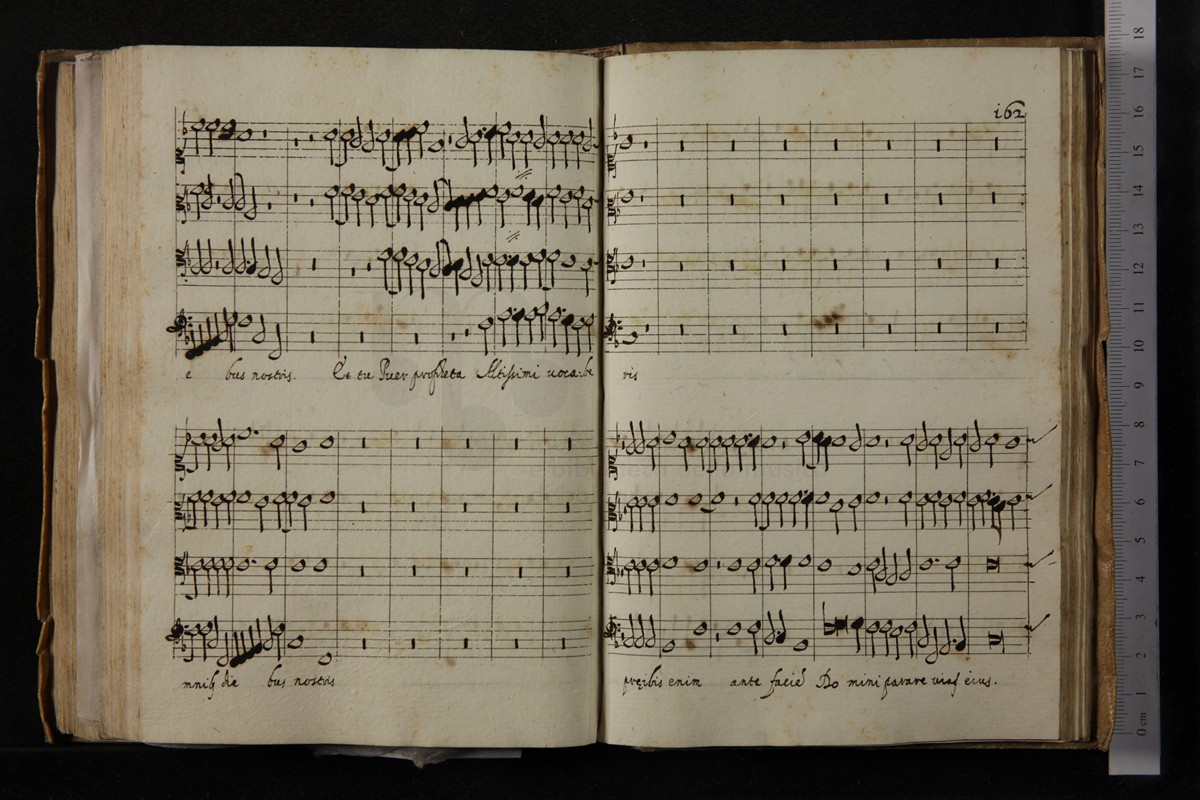 162
e bus nostris. Et tu Puer propheta Altissimi uocabe
ris
mnib9 die bus nostris
pręibis enim ante facie Do mini parare uias eius.
18
17
16
15
14
13
12
11
10
9
8
7
6
5
4
3
2
1
0 cm